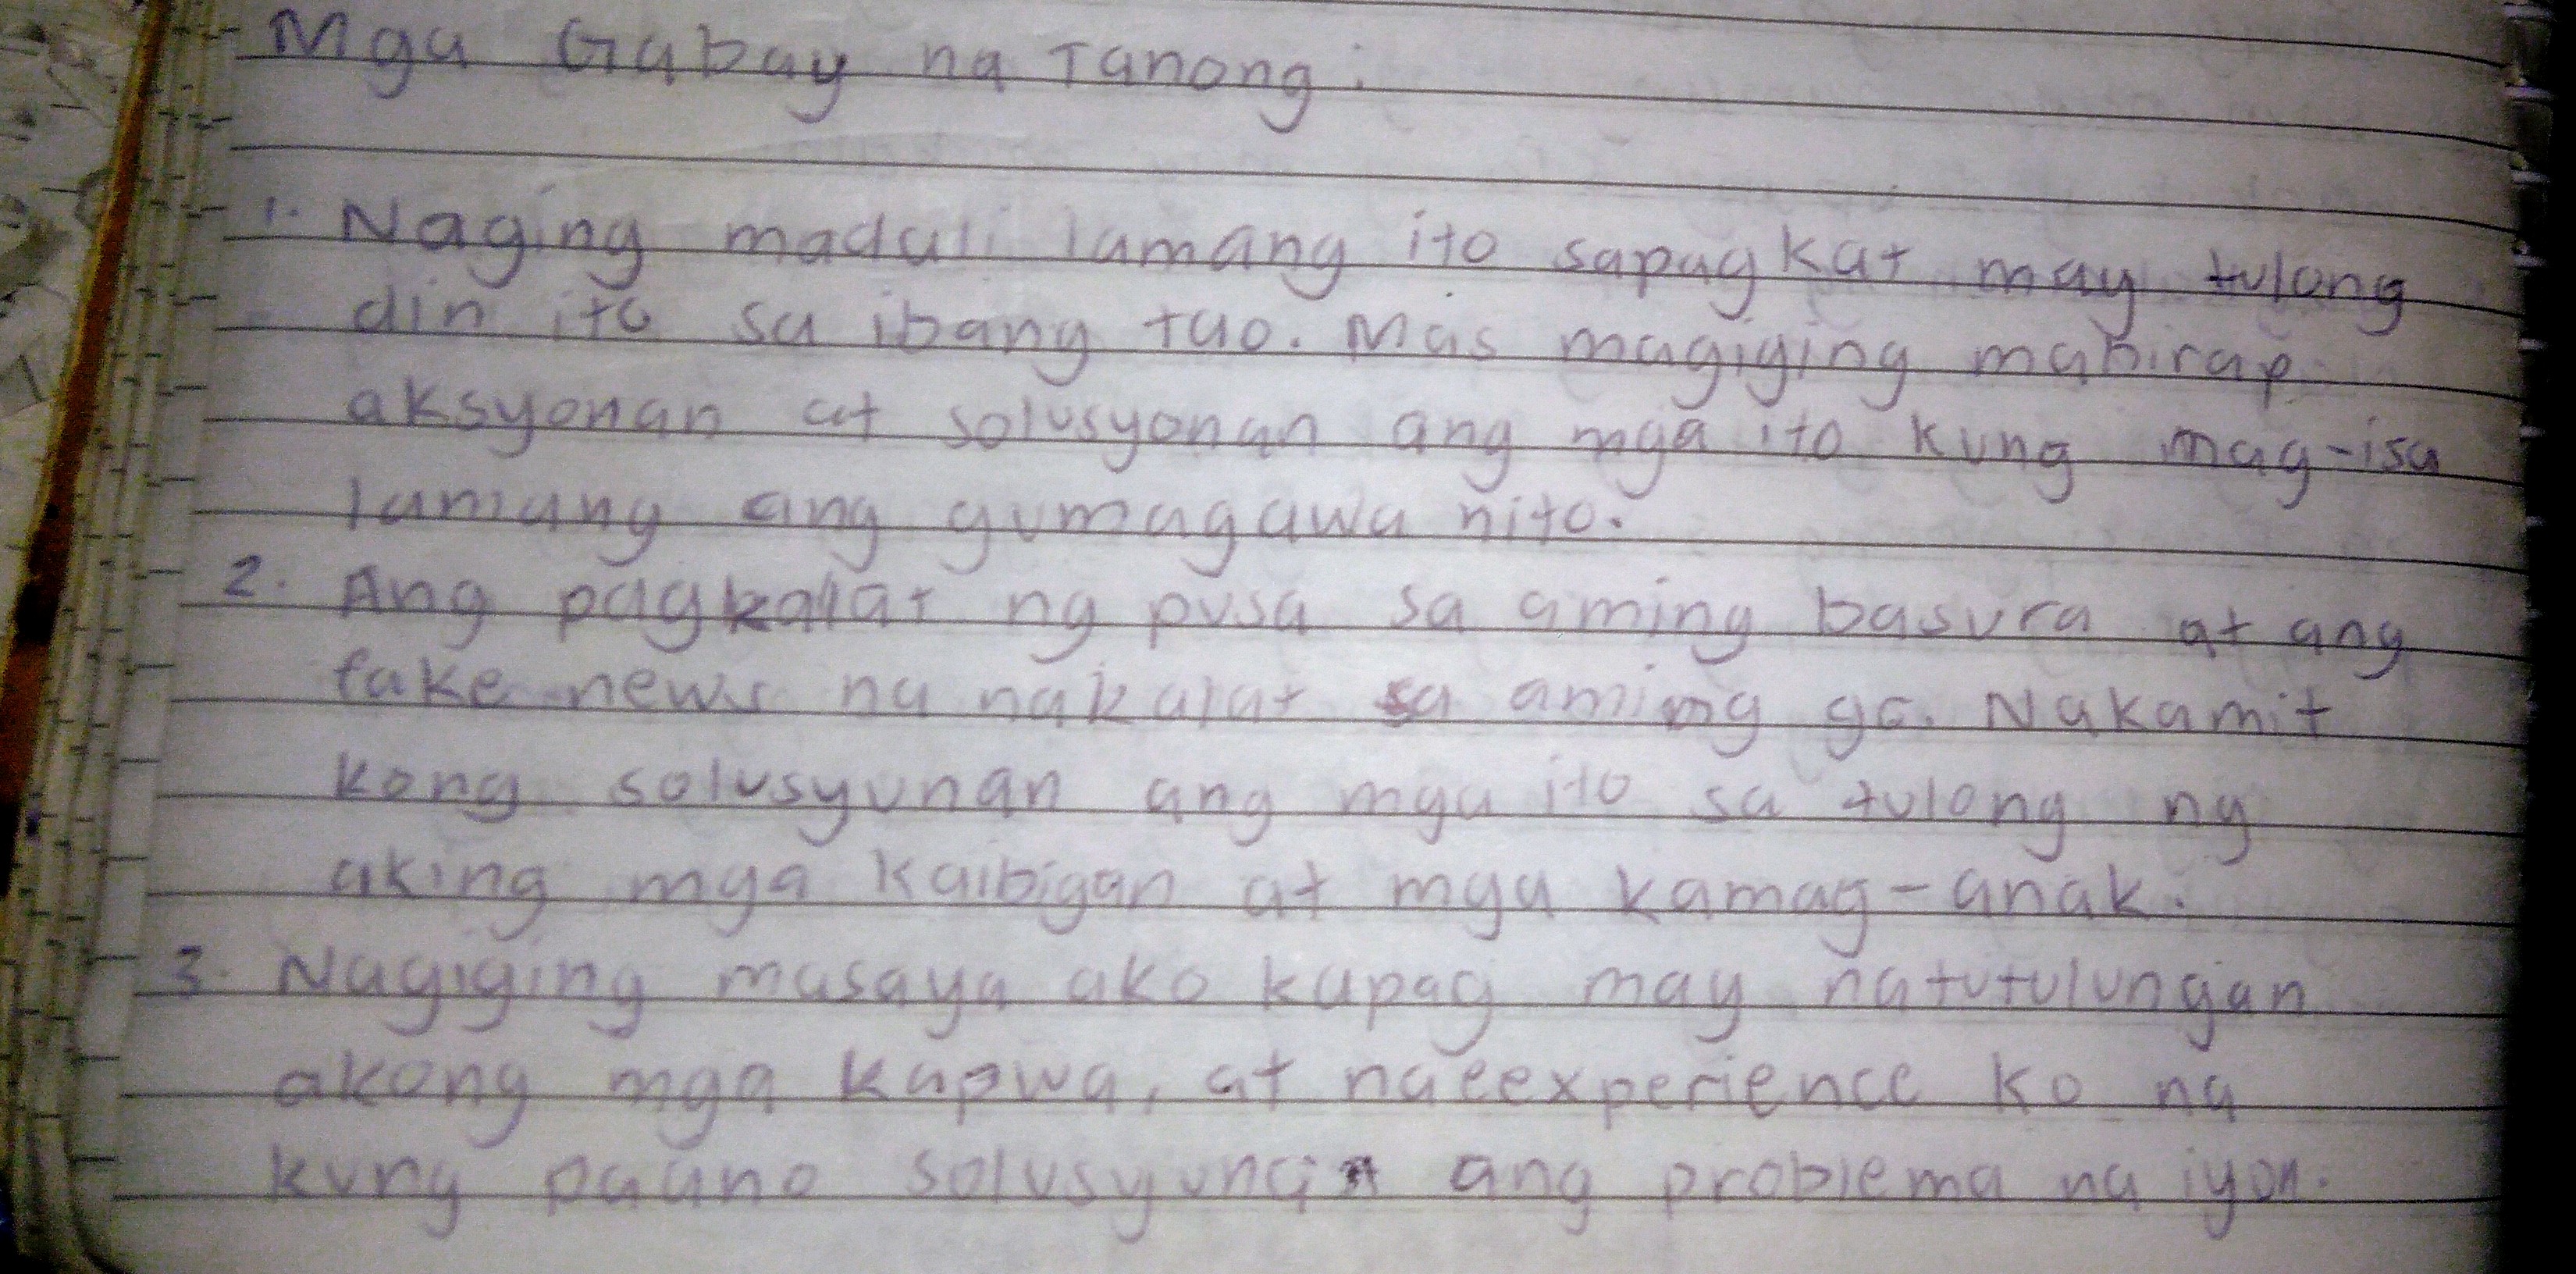 Mga Gabay na Tanong:
1. Naging madali lamang ito sapagkat may tulong
din ito sa ibang tao. Mas magiging mahirap
aksyonan at solusyonan ang mga ito kung mag-isa
lamang ang gumagawa nito.
2. Ang pagkalat ng pusa sa aming basura at ang
fake news na nakalat sa aming gc. Nakamit
kong solusyunan ang mga ito sa tulong ng
aking mga kaibigan at mga kamag-anak.
3. Nagiging masaya ako kapag may natutulungan
akong mga kapwa, at naeexperience ko na
kung paano solusyunan ang problema na iyon.